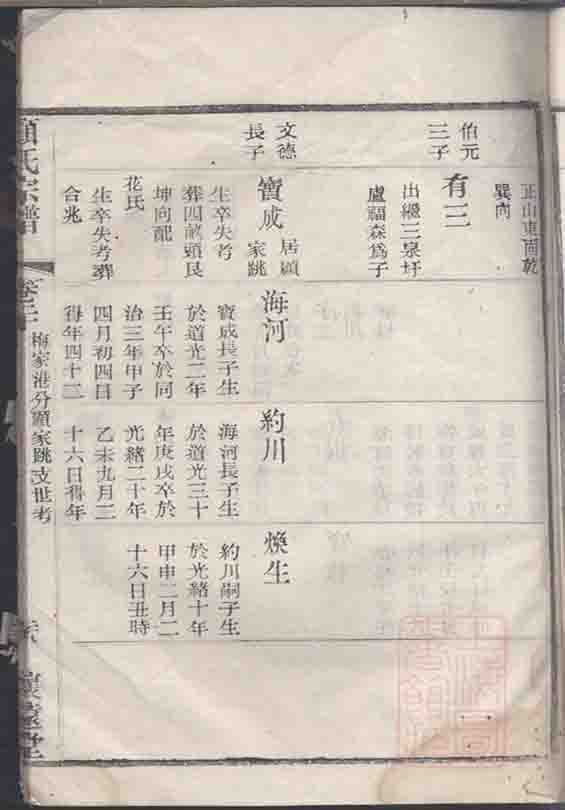 正山東向乾
巽向
伯元
三子
有三
出繼三泉圩
盧福森爲子
文德
長子
寶成
居顧
家跳
生卒失考
葬四畝頭艮
坤向配
花氏
生卒失考葬
合兆
海河
寶成長子生
於道光二年
壬午卒於同
治三年甲子
四月初四日
得年四十三
約川
海河長子生
於道光三十
年庚戌卒於
光緒二十年
乙未九月二
十六日得年
煥生
約川嗣子生
於光緒十年
甲申二月二
十六日丑時
顧氏宗譜
梅家港分顧家跳支世考